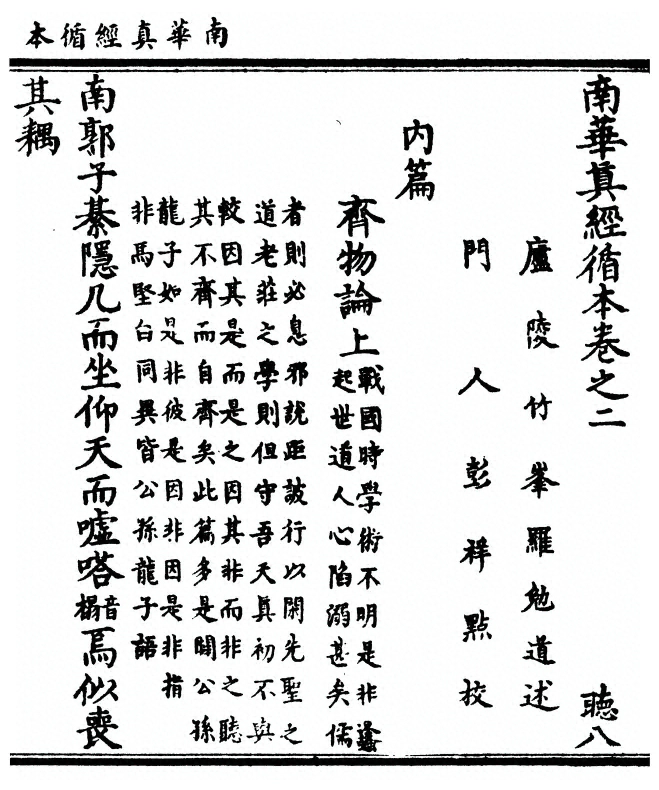 南華真經循本
南華眞經循本卷之二 聴八
廬陵竹峯羅勉道述
門人彭祥點校
内篇
齊物論上
戰國時學術不明是非蠭
起世道人心陷溺甚矣儒
者則必息邪說距詖行以閑先聖之
道老莊之學則但守吾天真初不與
較因其是而是之因其非而非之聽
其不齊而自齊矣此篇多是闢公孫
龍子如是非彼是因非因是非指
非馬堅白同異皆公孫龍子語
南郭子綦隱几而坐仰天而噓嗒音榻焉似喪
其耦